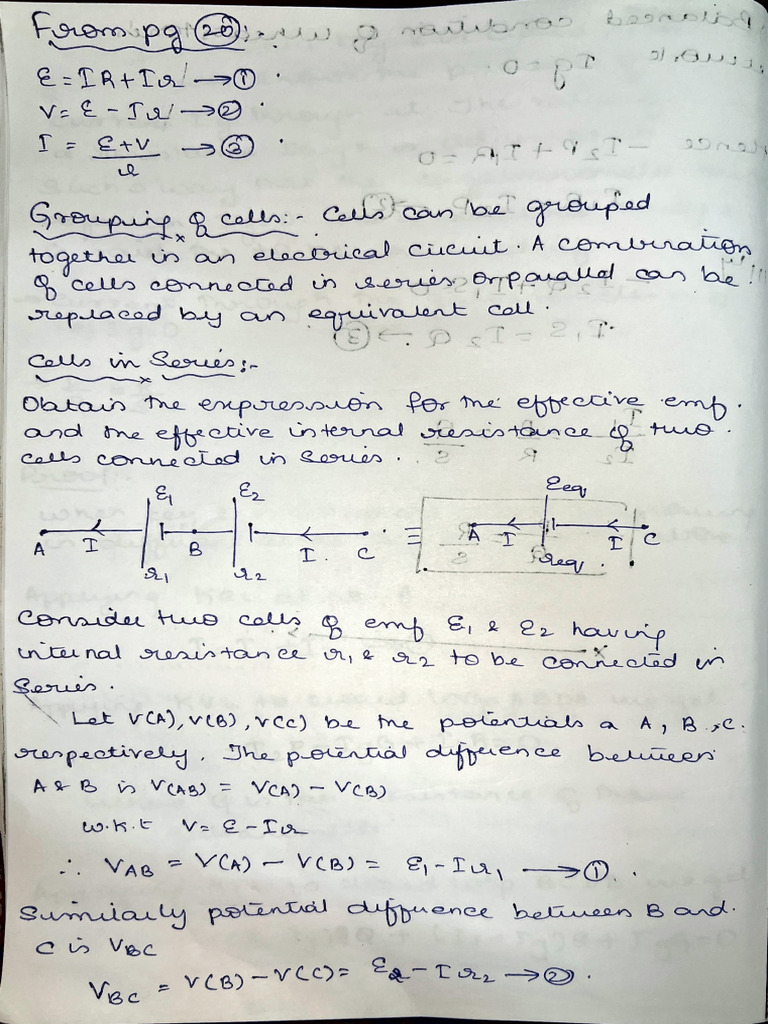 From pg 20
ε = IR + Ir → ①
V = ε - Ir → ②
I = ε+V/r → ③
Grouping of cells:- Cells can be grouped
together in an electrical circuit. A combination
of cells connected in series or parallel can be
replaced by an equivalent cell.
Cells in Series:-
Obtain the expression for the effective emf.
and the effective internal resistance of two
cells connected in series.
ε1 ε2 εeq
A I B I C ≡ A I I C
r1 r2 req
Consider two cells of emf ε1 & ε2 having
internal resistance r1 & r2 to be connected in
series.
Let V(A), V(B), V(C) be the potentials a A, B, C.
respectively. The potential difference between
A & B is V(AB) = V(A) - V(B)
w.k.t V = ε - Ir
∴ VAB = V(A) - V(B) = ε1 - Ir1 → ①.
Similarly potential diffuence between B and.
C is VBC
VBC = V(B) - V(C) = ε2 - Ir2 → ②.